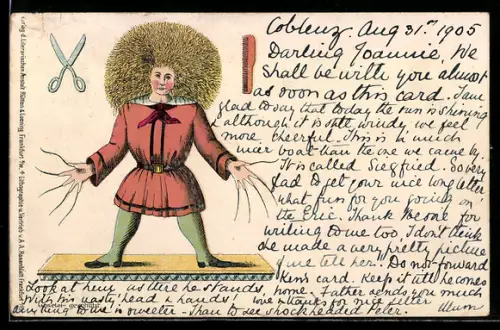 Coblenz Aug 31st 1905
Darling Joannie, We
shall be with you almost
as soon as this card. I am
glad to say that today the sun is shining
although it is still windy we feel
more cheerful. This is a much
nicer boat than the one we came by.
It is called Siegfried. So very
glad to get your nice long letter
what fun for you going on
the Eric. Thank the one for
writing to me too, I don't think
she made a very pretty picture
Do not forward
Ken's card. Keep it till he comes
home. Father sends you much
love & thanks for nice letter
Mum
Look at him as there he stands,
With his nasty head & hands!
anything to me is sweeter. Than to see shockheaded Peter.
Verlag d. Literarischen Anstalt Rütten & Loening, Frankfurt a/M. Lithographie u. Vertrieb v. A.R. Rosenblatt Frankfurt